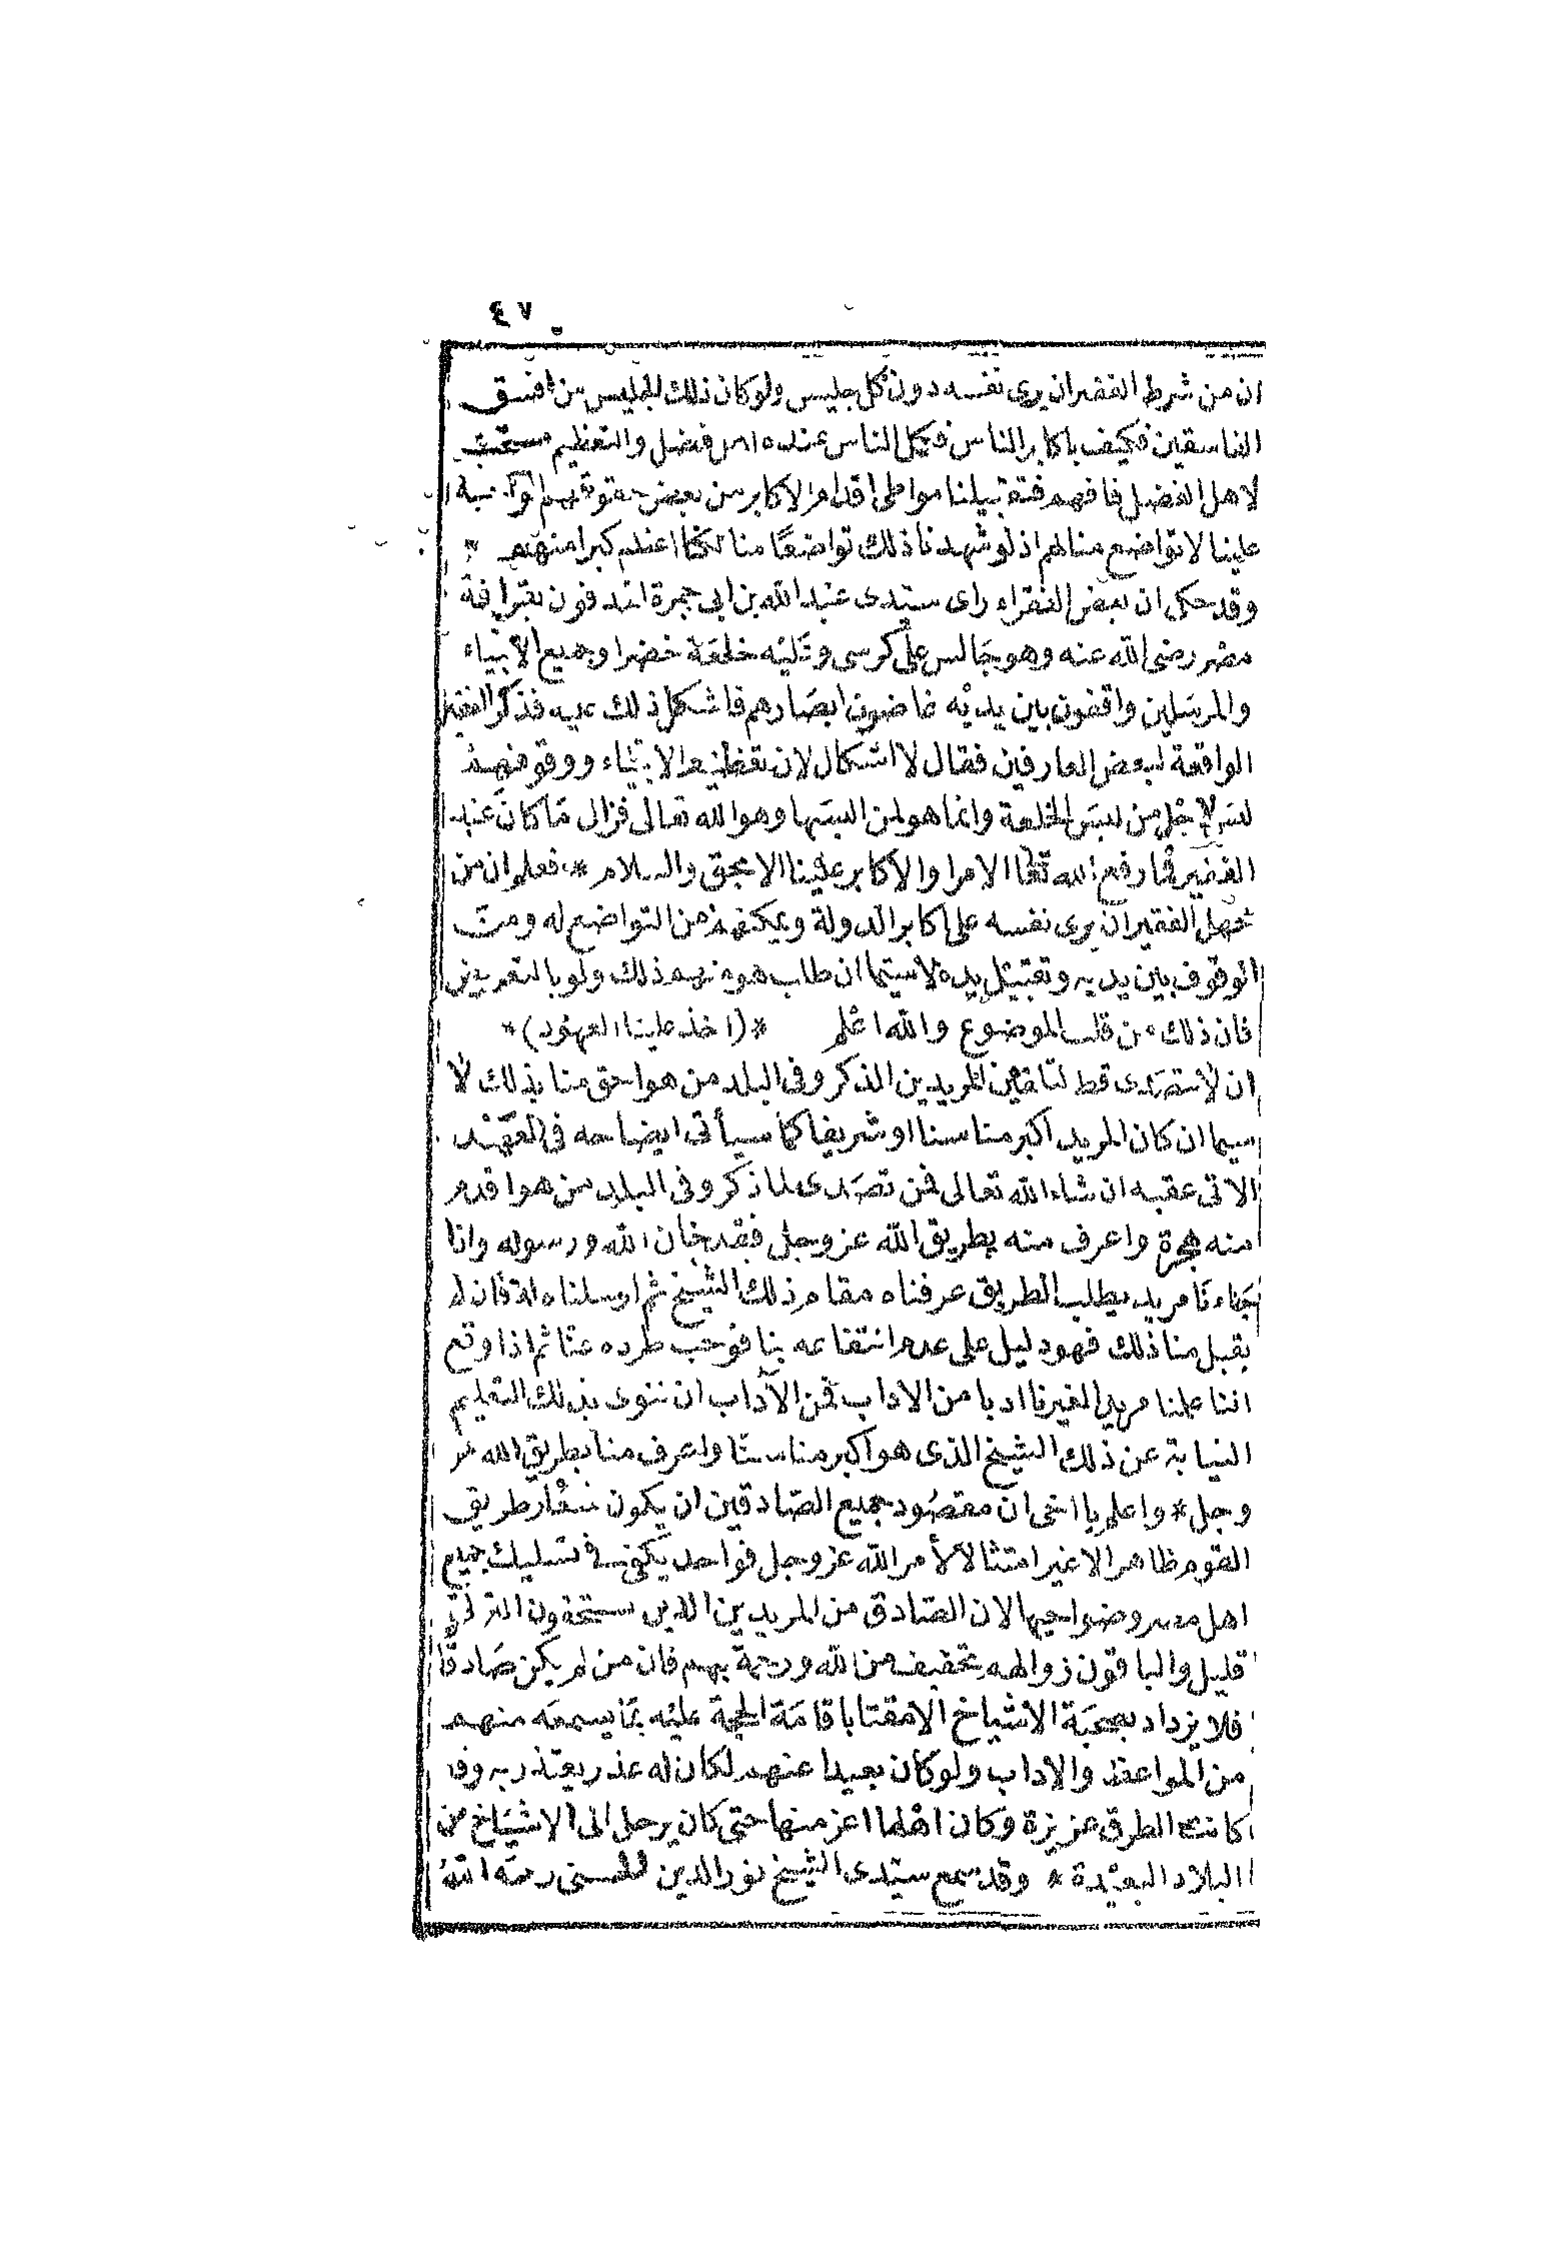 ٤٧
ان من شرط الفقير ان يرى نفسه دون كل جليس ولو كان ذلك الجليس من افسق
الفاسقين فكيف باكابر الناس فكل الناس عنده اهل فضل والتعظيم مستحب
لاهل الفضل فافهم فتقبيلنا مواطئ اقدام الاكابر من بعض حقوقهم الواجبة
علينا لا تواضع منا لهم اذ لو شهدنا ذلك تواضعا منا لكنا اعظم كبرا منهم *
وقد حكى ان بعض الفقراء راى سيدى عبد الله بن ابى جمرة المدفون بقرافة
مصر رضى الله عنه وهو جالس على كرسى وعليه خلعة خضرا وجميع الانبياء
والمرسلين واقفون بين يديه غاضون ابصارهم فاشكل ذلك عليه فذكر الفقير
الواقعة لبعض العارفين فقال لا اشكال لان تعظيم الانبياء ووقوفهم
ليس لاجل من لبس الخلعة وانما هو لمن البسها وهو الله تعالى فزال ما كان عند
الفقير فما رفع الله تعالى الامرا والاكابر علينا الا بحق والسلام * فعلم ان من
جهل الفقير ان يرى نفسه على اكابر الدولة ويمكنهم من التواضع له ومن
الوقوف بين يديه وتقبيل يده لاسيما ان طلب هو منهم ذلك ولو بالتعريض
فان ذلك من قلب الموضوع والله اعلم * (اخذ علينا العهود) *
ان لا نتصدى قط لتلقين المريدين الذكر وفى البلد من هو احق منا بذلك لا
سيما ان كان المريد اكبر منا سنا او شريفا كما سيأتى ايضاحه فى العهد
الاتى عقبه ان شاء الله تعالى فمن تصدى لما ذكر وفى البلد من هو اقدم
منه هجرة واعرف منه بطريق الله عز وجل فقد خان الله ورسوله واذا
جاءنا مريد يطلب الطريق عرفناه مقام ذلك الشيخ ثم ارسلناه له فان لم
يقبل منا ذلك فهو دليل على عدم انتفاعه بنا فوجب طرده عنا ثم اذا وقع
اننا علمنا مريدا لغيرنا ادبا من الاداب فمن الآداب ان ننوى بذلك التعليم
النيابة عن ذلك الشيخ الذى هو اكبر منا سنا واعرف منا بطريق الله عز
وجل * واعلم يا اخى ان مقصود جميع الصادقين ان يكون شعار طريق
القوم ظاهرا لا غير امتثالا لأمر الله عز وجل فواحد يكفى فى تسليك جميع
اهل مصر وضواحيها لان الصادق من المريدين الذين يستحقون الترقى
قليل والباقون زوالهم تخفيف من الله ورحمة بهم فان من لم يكن صادقا
فلا يزداد بصحبة الاشياخ الا مقتا باقامة الحجة عليه بما يسمعه منهم
من المواعظ والاداب ولو كان بعيدا عنهم لكان له عذر يعتذر به وقد
كانت الطرق عزيزة وكان اهلها اعز منها حتى كان يرحل الى الاشياخ من
البلاد البعيدة * وقد سمع سيدى الشيخ نور الدين الحسنى رحمه الله